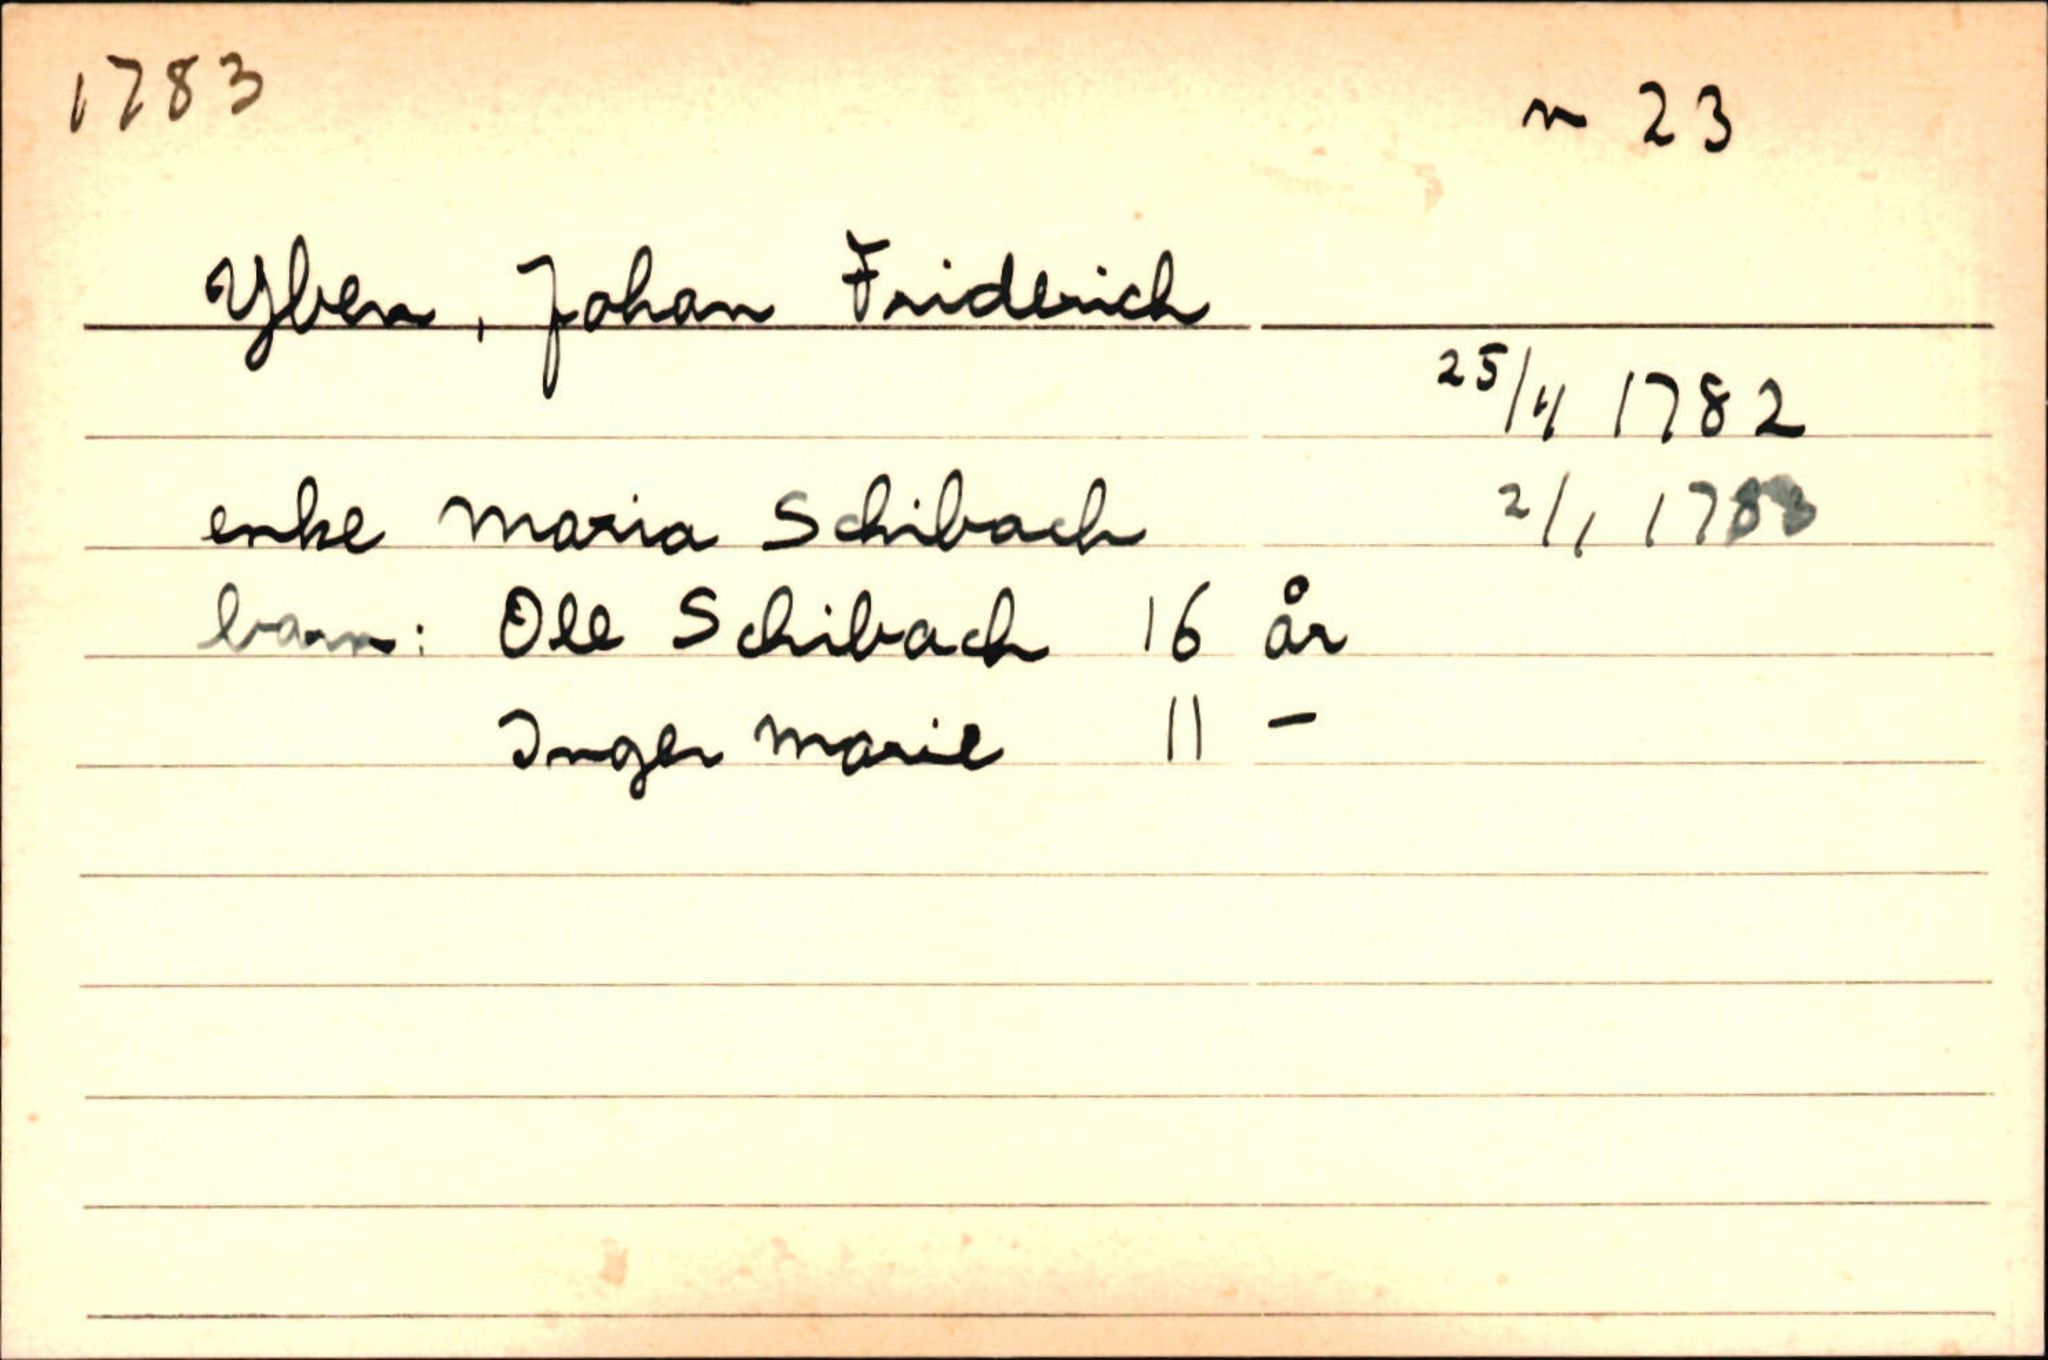 1783
n 23
Yben, Johan Friderich
25/11 1782
enke Maria Schibach 2/1 1783
barn: Ole Schibach 16 år
Inger Marie 11 -